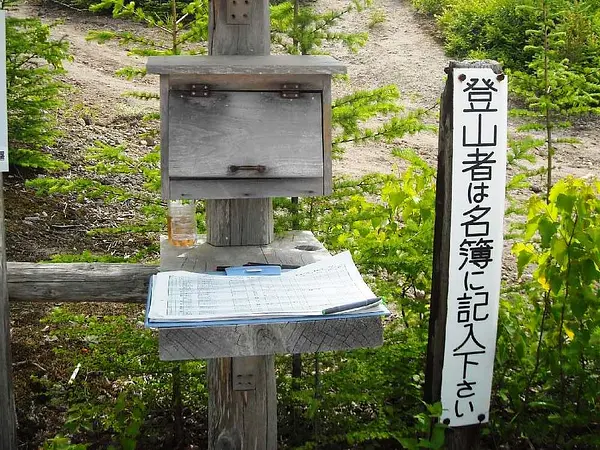 登山者は名簿に記入下さい